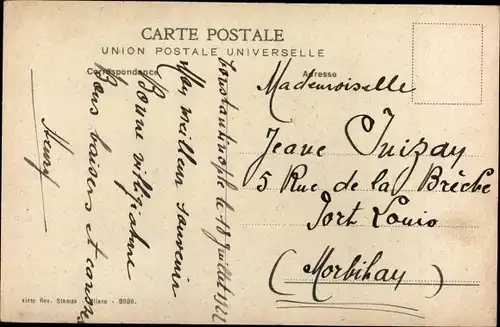 CARTE POSTALE
UNION POSTALE UNIVERSELLE
Correspondance
Adresse
Constantinople le 18 Juillet 1922
Mon meilleur souvenir
Bonne villégiature
Bons baisers et
Henry
Mademoiselle
Jeane Juizay
5 Rue de la Brèche
Port Louis
(Morbihay)
Rev. Stampa - Milano - 8098.